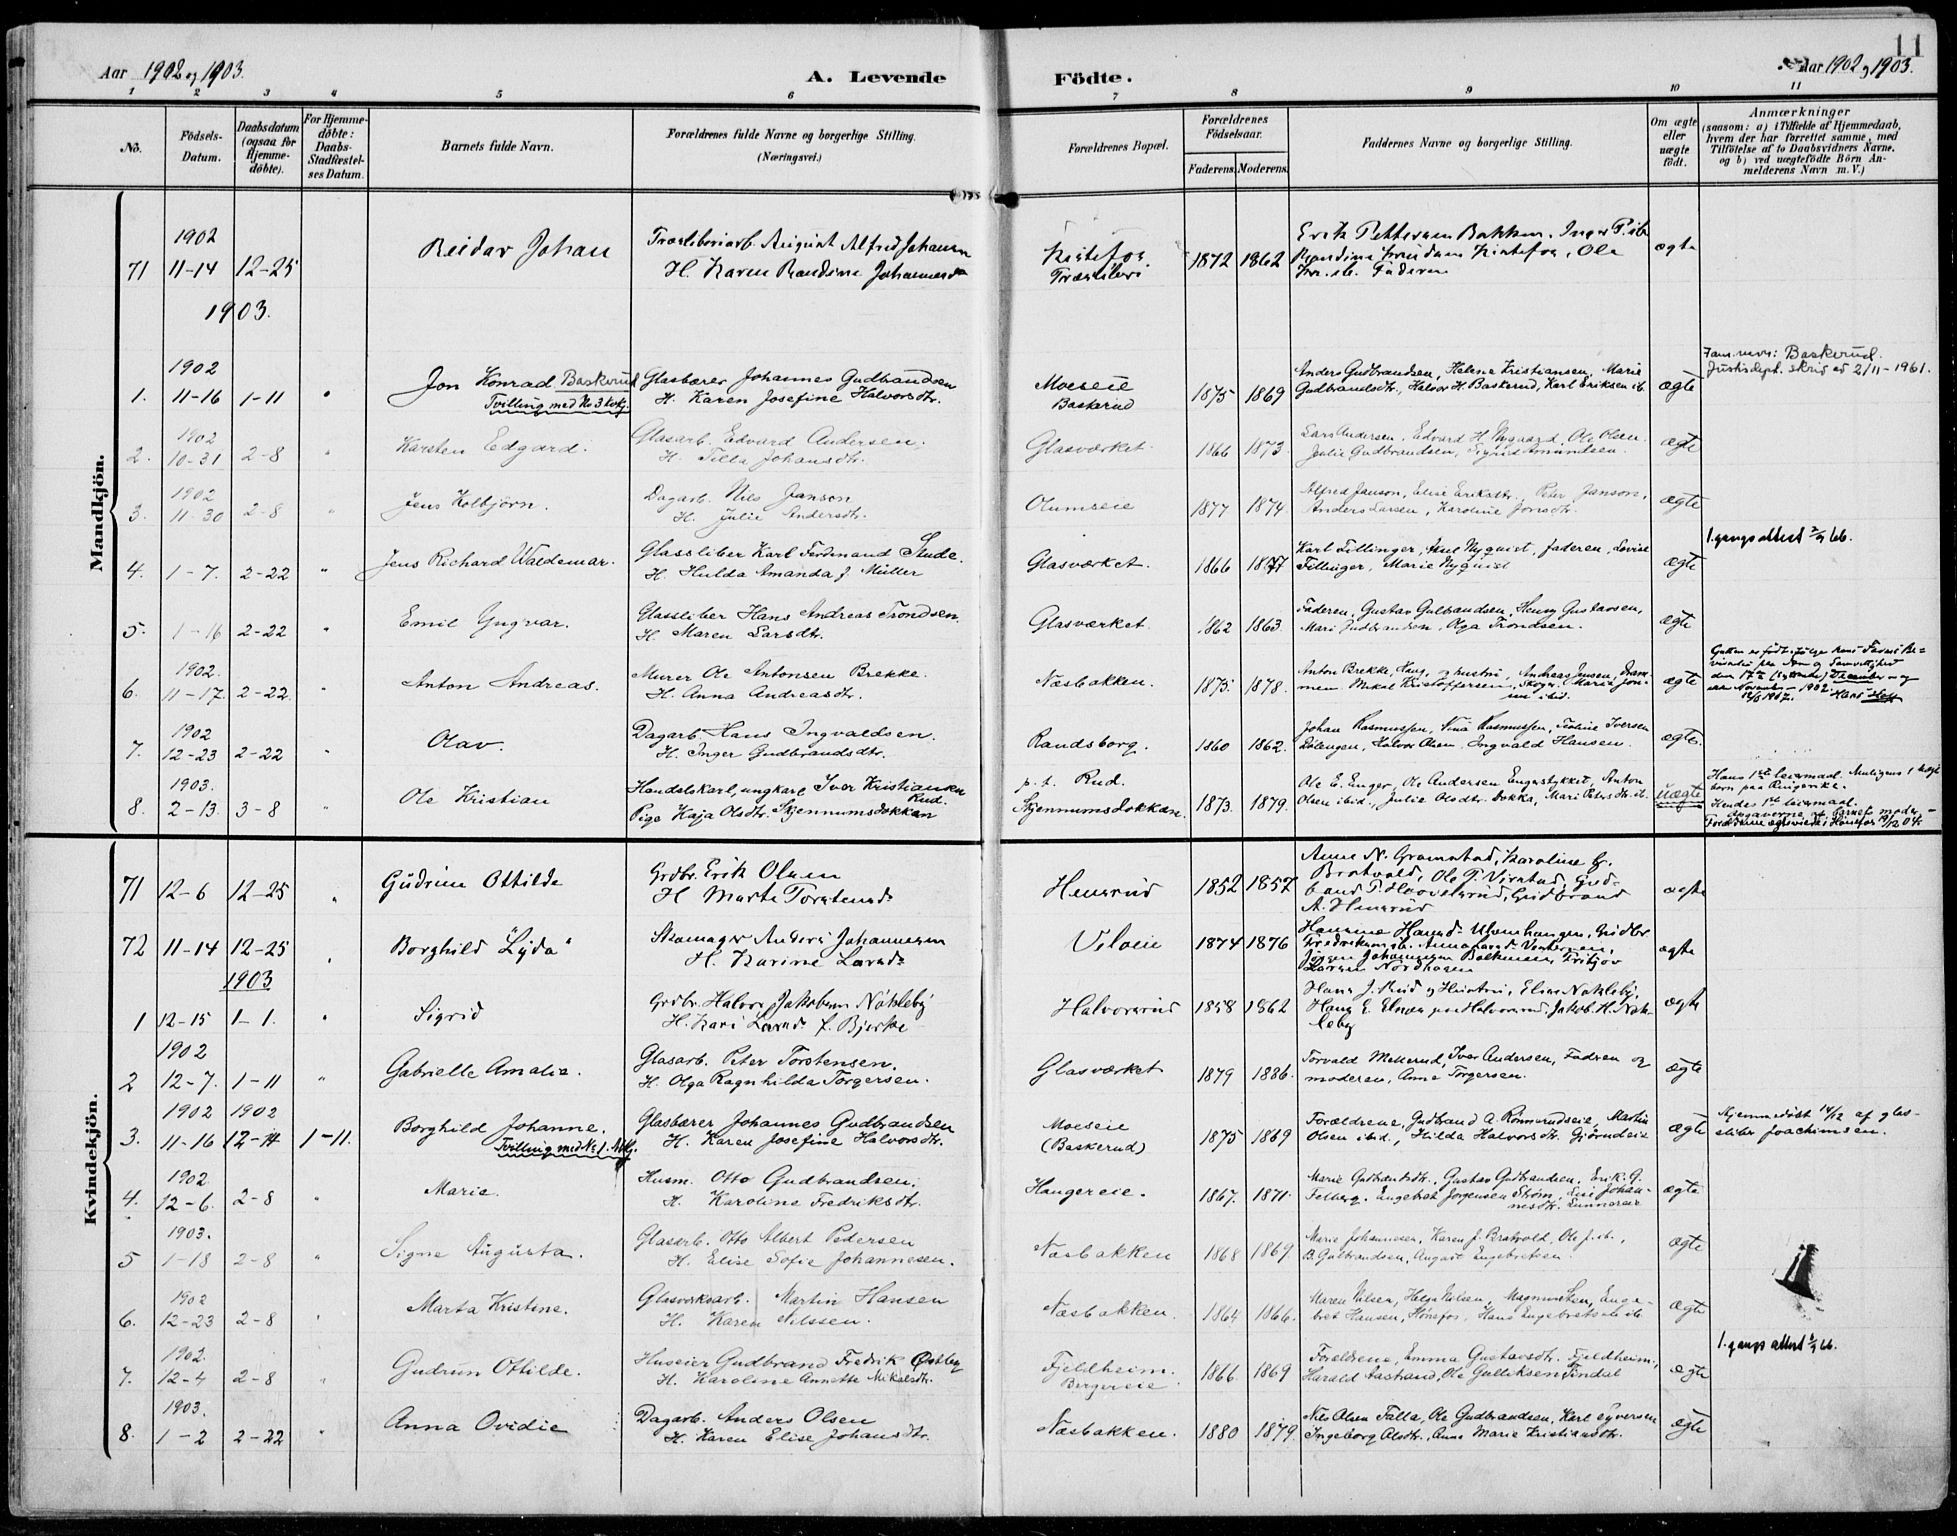 11
Aar 1902 og 1903.
A. Levende Födte.
Aar 1902 og 1903.
1 2 3 4 5 6 7 8 9 10 11
No.
Födsels-
Datum.
Daabsdatum
(ogsaa for
Hjemme-
döbte).
For Hjemme-
döbte:
Daabs-
Stadfæstel-
ses Datum.
Barnets fulde Navn.
Forældrenes fulde Navne og borgerlige Stilling.
(Næringsvei.)
Forældrenes Bopæl.
Forældrenes
Födselsaar.
Faderens. Moderens.
Faddernes Navne og borgerlige Stilling.
Om ægte
eller
uægte
födt.
Anmærkninger
(saasom: a) i Tilfælde af Hjemmedaab,
hvem der har forrettet samme, med
Tilföielse af to Daabsvidners Navne.
og b) ved uægtefödte Börn An-
melderens Navn m. V.)
Mandkjön.
1902
71 11-14 12-25 Reidar Johan
Træsliberiarb. August Alfred Johansen
H. Karen Randine Johannesd
Kistefos
Træsliberi
1872 1862
Faderen
ægte
1903.
1902
1. 11-16 1-11 Jon Konrad Baskerud
Tvilling med No 3 kvkj.
Glasbærer Johannes Gudbrandsen
H. Karen Josefine Halvorsdtr.
Moeseie
Baskerud
1875 1869
Anders Gudbrandsen, Helene Kristiansen, Marie
Gudbrandsdtr., Halvor H. Baskerud, Karl Eriksen ib.
ægte
Fam.navn: Baskerud.
Justisdept. skriv ed 2/11-1961.
1902
2. 10-31 2-8 " Karsten Edgard.
Glasarb. Edvard Andersen.
H. Tilla Johansdtr.
Glasværket.
1866 1873.
Lars Andersen, Edvard H. Nygaard, Ole Olsen.
Julie Gudbrandsen, Sigrid Amundsen.
ægte
1902
3. 11-30 2-8 " Jens Kolbjörn.
Dagarb. Nils Janson
H. Julie Andersdtr.
Olumseie
1877 1874.
Alfred Janson, Elise Eriksdtr., Peter Janson,
Anders Larsen, Karoline Jonsdtr.
ægte
4. 1-7. 2-22 " Jens Richard Waldemar.
Glassliber Karl Ferdinand
H. Hulda Amanda f. Müller
Glasværket.
1866 1877
Karl Fillinger, Axel Nyquist, faderen, Lovise
Fillinger, Marie Nyquist
ægte
1. gangs attest
5. 1-16 2-22 " Emil Yngvar.
Glassliber Hans Andreas Trondsen.
H. Maren Larsdtr.
Glasværket.
1862 1863.
Faderen, Gustav Gulbrandsen, Henry Gustavsen,
Mari Gudbrandsen, Olga Trondsen.
ægte
1902.
6. 11-17. 2-22. " Anton Andreas.
Murer Ole Antonsen Brekke.
H. Anna Andreasdtr.
Næsbakken.
1875. 1878.
Anton Brekke, Haug, og hustru, Andreas Jensen, Dram-
men. Mikal Kristoffersen, Skoger, Maria Jon-
ibid.
ægte
1902
7. 12-23 2-22 " Olav.
Dagarb. Hans Ingvaldsen.
H. Inger Gudbrandsdtr.
Randsborg.
1860 1862.
Johan Rasmussen, Nina Rasmussen, Iversen
Halvor Olsen, Ingvald Hansen.
ægte.
1903.
8. 2-13. 3-8 " Ole Kristian
Handelskarl, ungkarl Iver Kristiansen
Rud.
Pige Kaja Olsdtr. Skjennumsdokken
p. t. Rud.
Skjennumsdokken.
1873. 1879.
Ole E. Enger, Ole Andersen Engerstykket, Anton
Olsen ibid., Julie Olsdtr. Dokka, Mari Petersdtr. ib.
uægte
Hans 1ste leiermaal.
barn paa Ringerike.
Hendes 1ste leiermaal.
Kvindekjön.
71 12-6 12-25 " Gudrun Ottilde
Grdbr. Erik Olsen
H Marte Torstensd.
Hensrud
1852 1857
Anne N. Gramstad, Karoline G.
Bratvold,
A. Hensrud
ægte
72 11-14 12-25 Borghild "Lyda"
Skomager Anders Johannesen
H. Karine Larsd.
Veloeie
1874 1876
Nordhagen
ægte
1903
1 12-15 1-1. " Sigrid
Grdbr. Halvor Jakobsen Nökleby
H. Kari Larsd. f. Bjerke
Halvorsrud
1858 1862
Hans J. Rud og Hustru, Elise Nökleby,
Hans E. Elnæs paa Halvorsrud, Jakob H. Nök-
leby
ægte
1902
2 12-7. 1-11 " Gabrielle Amalie.
Glasarb. Peter Torstensen.
H. Olga Ragnhilda Torgersen.
Glasværket
1879 1886.
Torvald Mellerud, Iver Andersen, Fadren og
moderen, Anne Torgersen.
ægte
1902 1902
3. 11-16 12-14 1-11. Borghild Johanne.
Tvilling med No 1. Mkj.
Glasbærer Johannes Gudbrandsen
H. Karen Josefine Halvorsdtr.
Moeseie
(Baskerud)
1875 1869
Forældrene, Gudbrand A. Rönnerudseie, Martin
Olsen ibid., Hilda Halvorsdtr. Gjörudeie
ægte
Hjemmedöbt 14/12 af glas-
sliber Joachimsen.
1902.
4. 12-6. 2-8 " Marie.
Husm. Otto Gudbrandsen.
H. Karoline Fredriksdtr.
Haugereie.
1867. 1871.
Marie Gudbrandsdtr., Gustav Gudbrandsen, Erik G.
Felberg, Engebret Jörgensen Ström, Lise Johan-
nesdtr. Sunnereie
ægte
1903.
5 1-18 2-8 " Signe Augusta.
Glasarb. Otto Albert Pedersen
H. Elise Sofie Johannesen.
Næsbakken
1868 1869.
Marie Johannesen, Karen J. Bratvold, Ole J. ib.,
B. Gudbrandsen, August Engebretsen.
ægte
1902
6. 12-23 2-8 " Marta Kristine.
Glasværksarb. Martin Hansen
H. Karen Nilssen.
Næsbakken.
1864 1866.
Maren Nilsen, Helga Nilsen, Enge-
bret Hansen, Hönefos, Hans Engebretsen ib.
ægte
1902.
7. 12-4 2-8 " Gudrun Ottilde.
Huseier Gudbrand Fredrik Østby
H. Karoline Annette Mikalsdtr.
Fjeldheim.
Bergereie
1866. 1869
Forældrene, Emma Gustavsdtr. Fjeldheim,
Harald Aastrand, Ole Gulliksen Findal
ægte
1. gangs attest
1903.
8. 1-2 2-22 " Anna Ovidie
Dagarb. Anders Olsen
H. Karen Elise Johansdtr.
Næsbakken.
1880 1879.
Nils Olsen Falla, Ole Gudbrandsen, Karl Syversen
Ingeborg Olsdtr., Anna Marie Kristiansdtr.
ægte